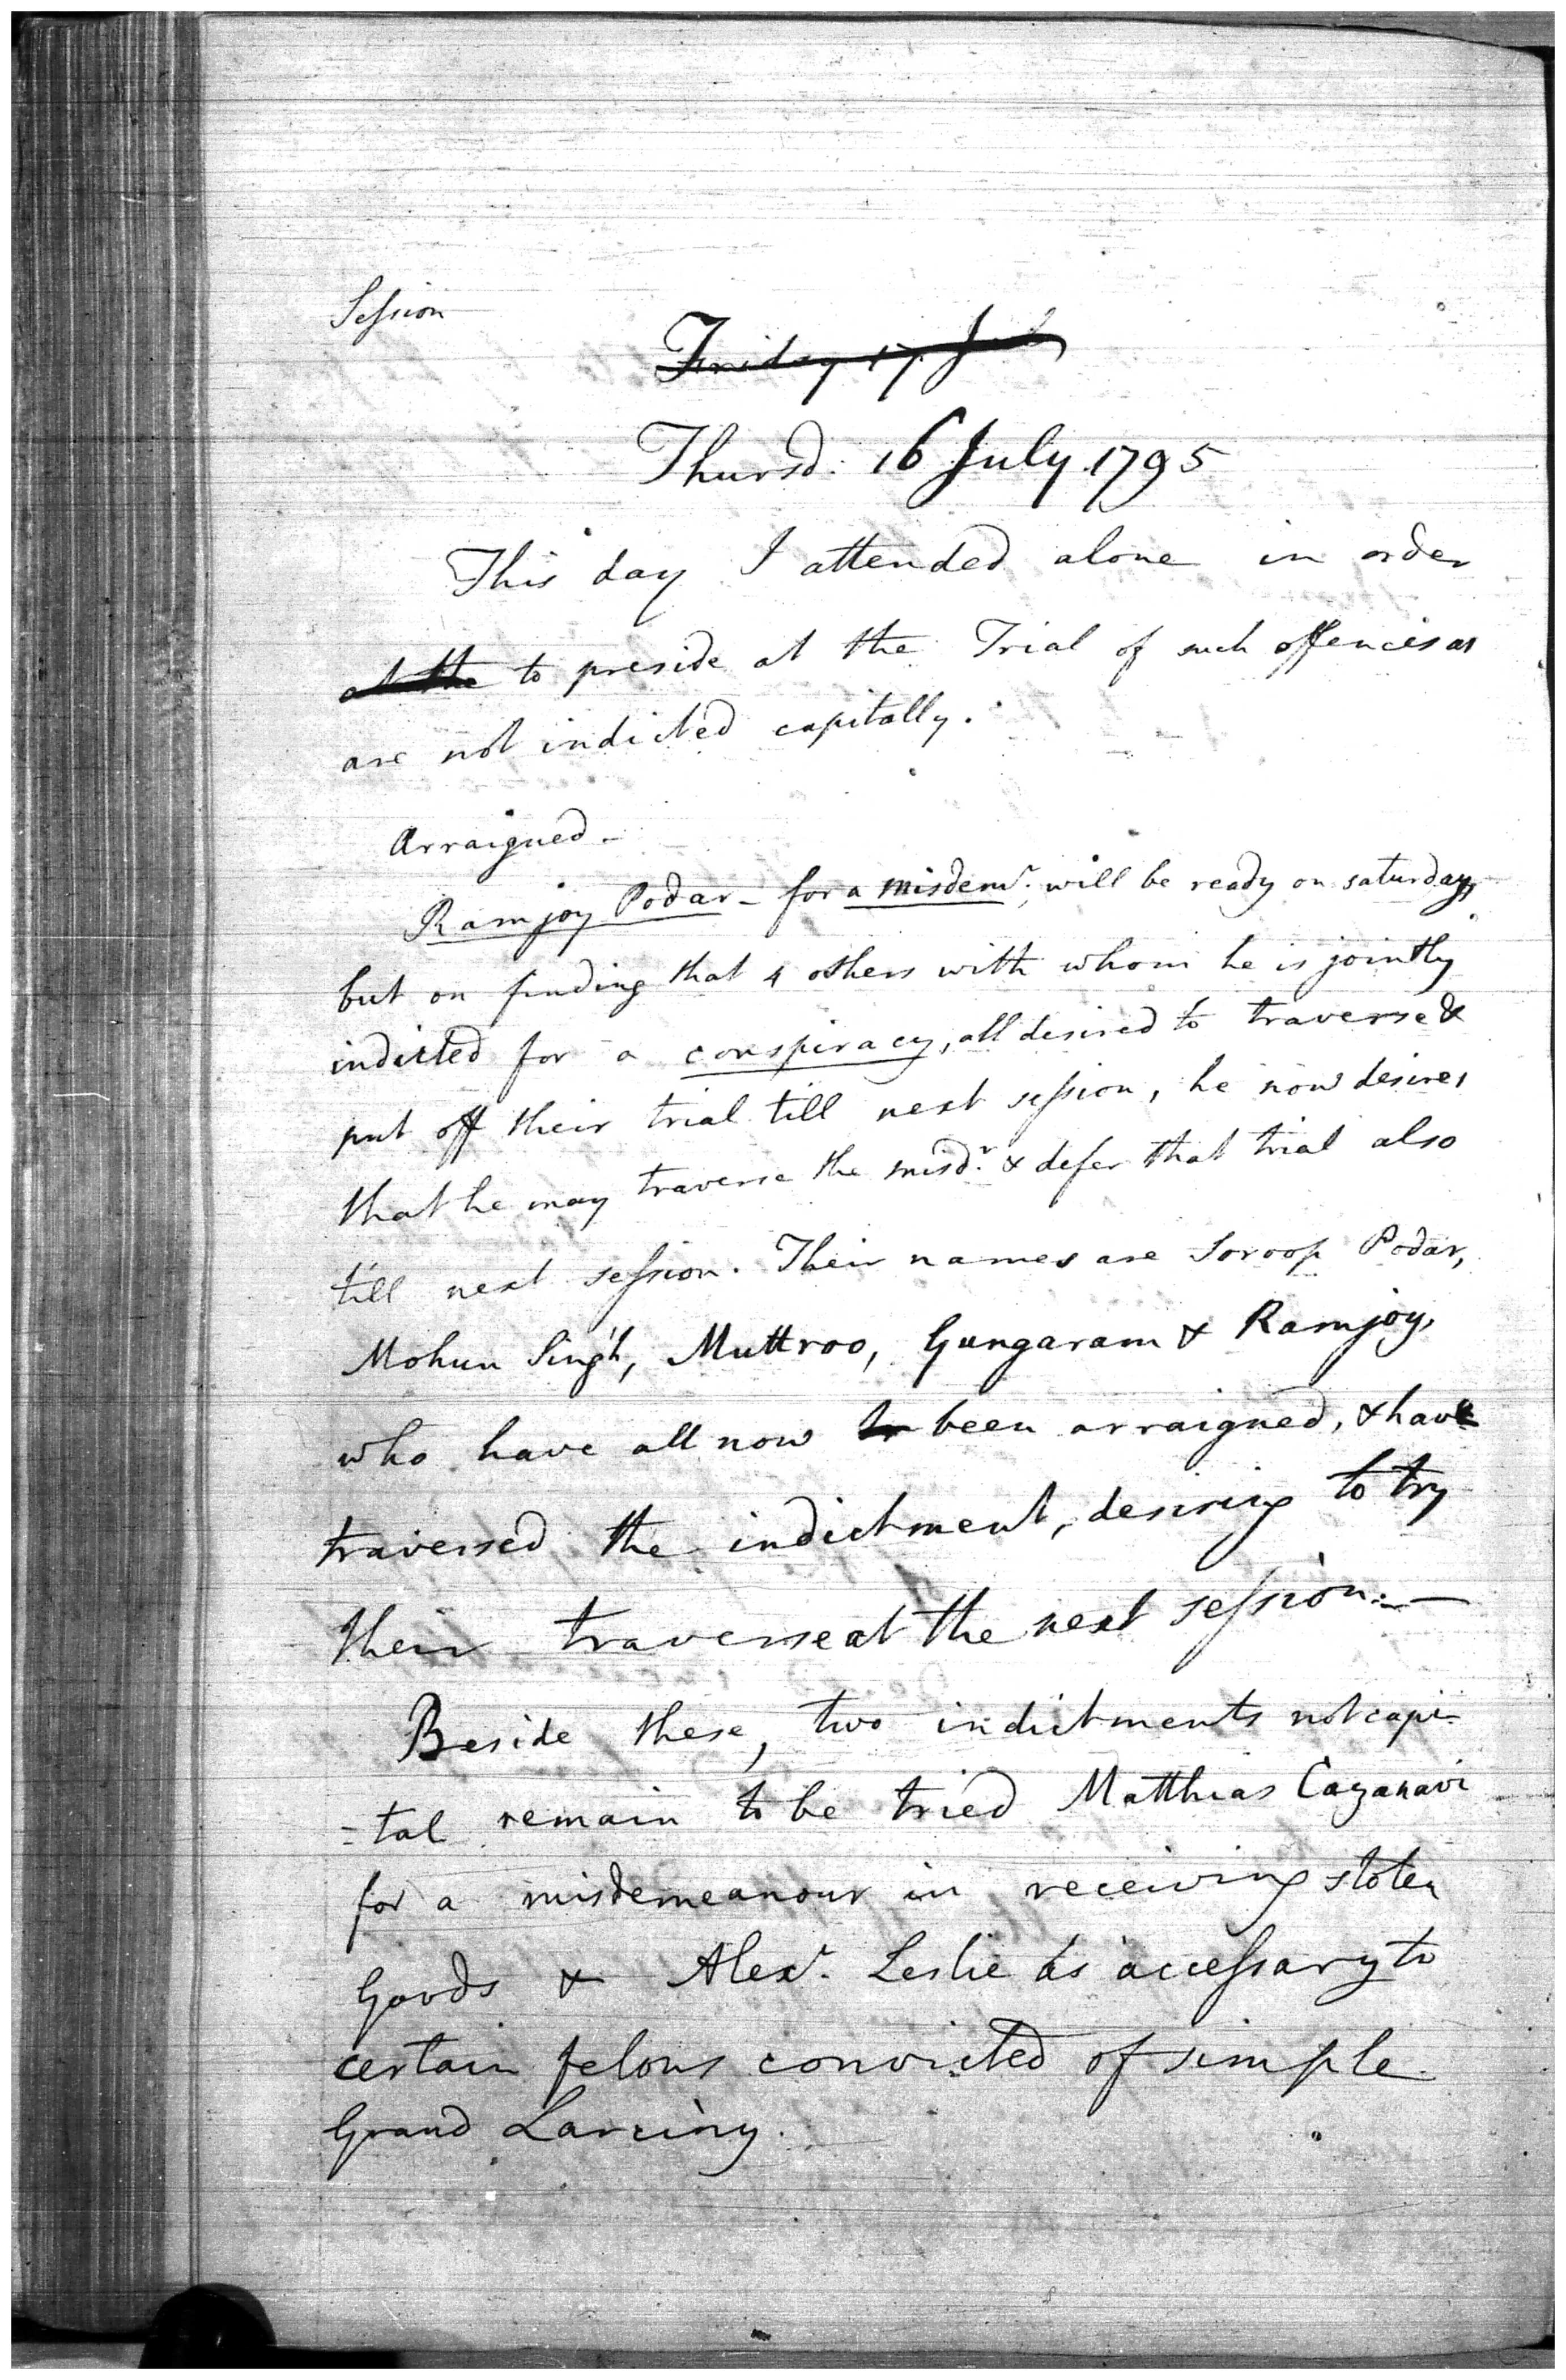 Session
Friday 17 Jul
Thursd. 16 July 1795
This day I attended alone in order
at the to preside at the Trial of such offences as
are not indicted capitally.
Arraigned –
Ramjoy Podar – for a misdemr. will be ready on saturday,
but on finding that 4 others with whom he is jointly
indicted for a conspiracy, all desired to traverse &
put off their trial till next session, he now desires
that he may traverse the misdr. & defer that trial also
till next session. Their names are Soroop Podar,
Mohun Singh, Muttroo, Gungaram & Ramjoy,
who have all now been arraigned, & have
traversed the indictment, desiring to try
their traverse at the next session. —
Beside these, two indictments not capi-
-tal remain to be tried Matthias
for a misdemeanour in receiving stolen
Goods & Alexr. Leslie as accessary to
certain felons convicted of simple
Grand Larciny.